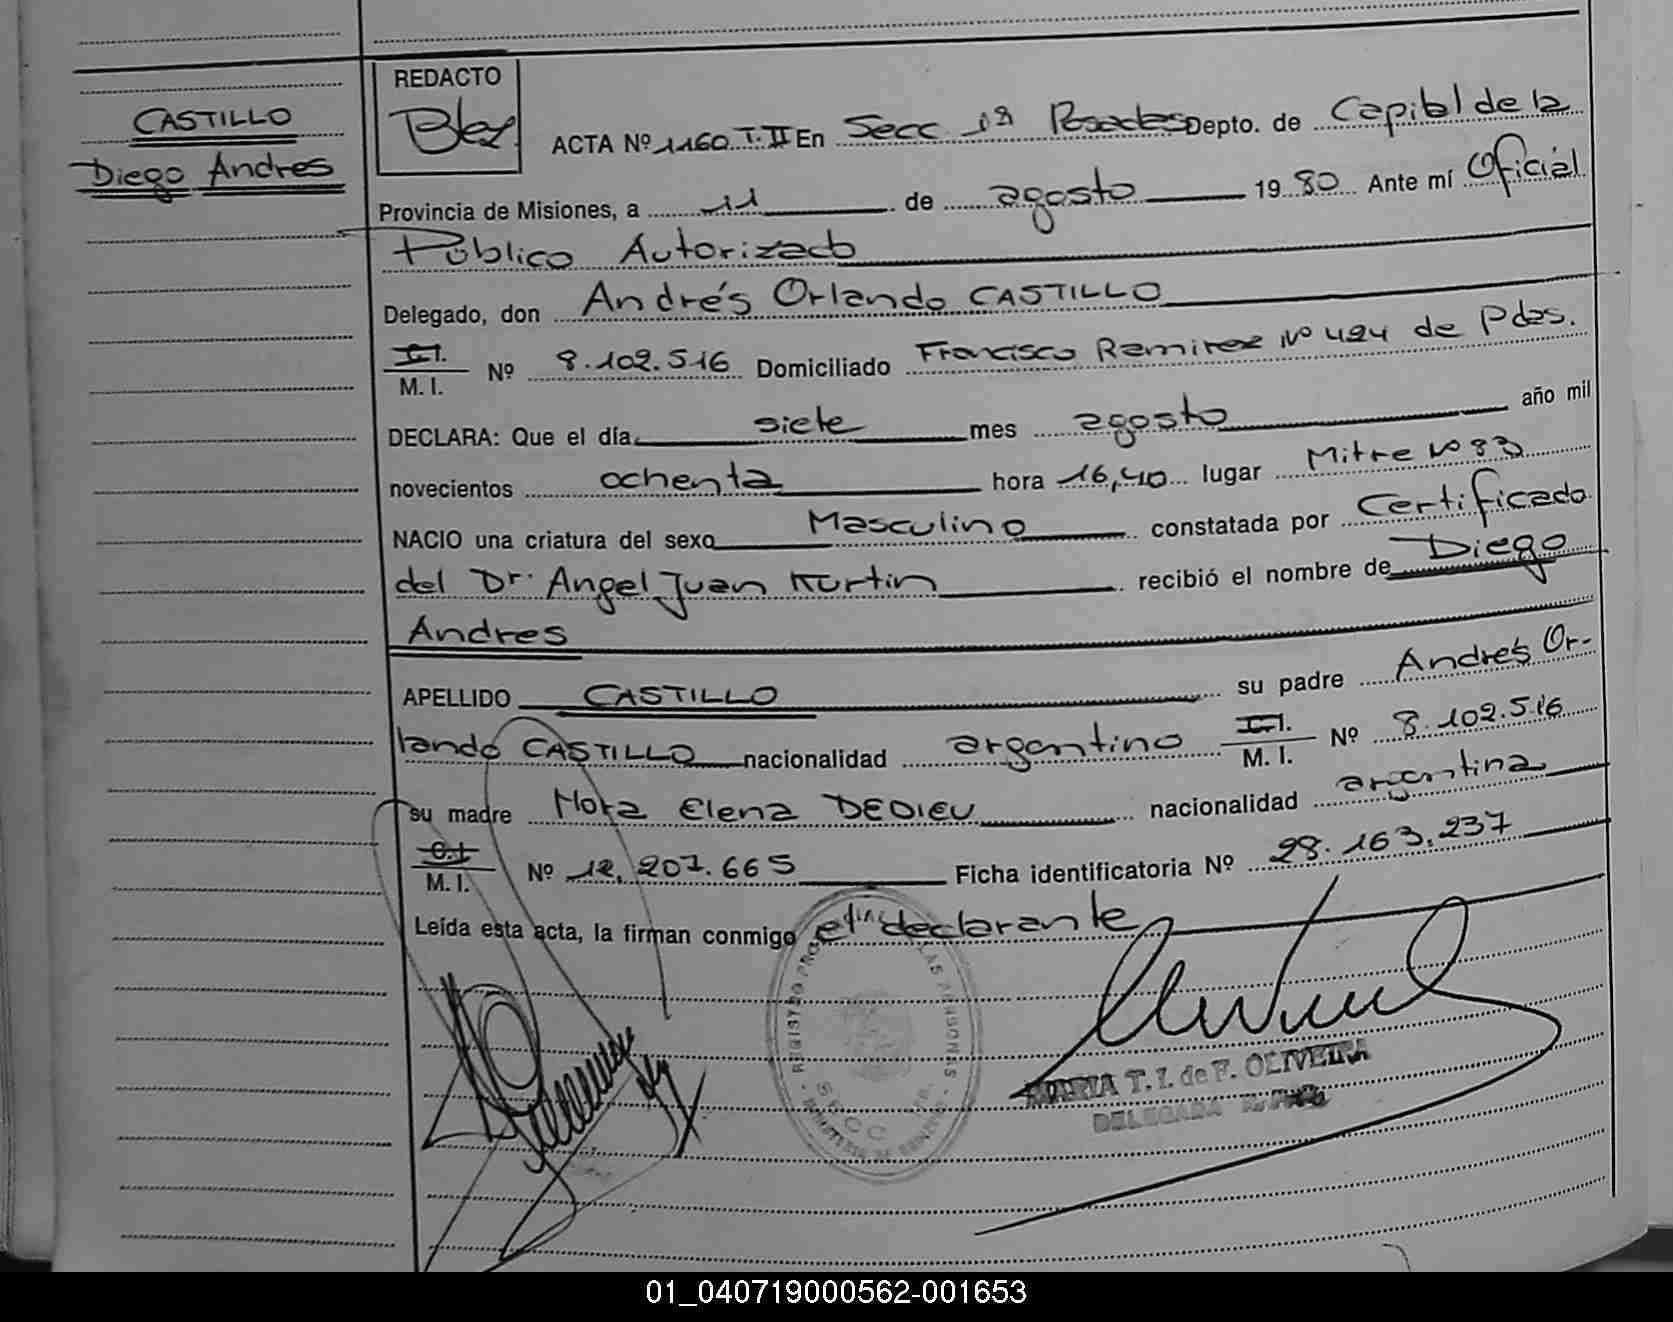 CASTILLO
Diego Andres
REDACTO
ACTA Nº 1160 T.II En Secc 1ª Posadas Depto. de Capital de la
Provincia de Misiones, a 11 de agosto 1980 Ante mí Oficial
Público Autorizado
Delegado, don Andrés Orlando CASTILLO
C.I.
M. I. Nº 8.102.516 Domiciliado Francisco Ramirez Nº 494 de Pdas.
DECLARA: Que el día siete mes agosto año mil
novecientos ochenta hora 16,40 lugar Mitre Nº 83
NACIO una criatura del sexo Masculino constatada por Certificado
del Dr. Angel Juan Kurtin recibió el nombre de Diego
Andres
APELLIDO CASTILLO su padre Andrés Or-
lando CASTILLO nacionalidad argentino C.I.
M. I. Nº 8.102.516
su madre Elena DEDIEU nacionalidad argentina
C.I
M. I. Nº 12.207.665 Ficha identificatoria Nº 28.163.237
Leída esta acta, la firman conmigo el declarante
REGISTRO PROVINCIAL DE LAS PERSONAS
SECC
MARIA T. I. de F. OLIVEIRA
DELEGADA
01_040719000562-001653